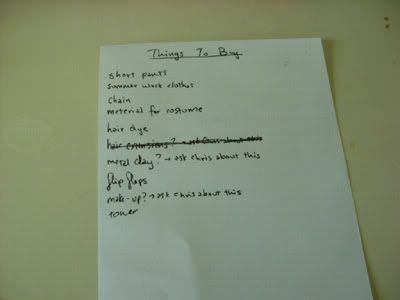 Things To Buy
short pants
summer work clothes
chain
material for costume
hair dye
hair extensions? → ask Chris about this
metal clay? → ask Chris about this
flip flops
make-up? → ask Chris about this